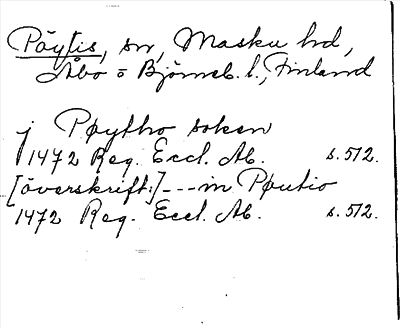 Pöytis, sn, Masku hd,
Åbo o Björneb. l., Finland
j Pøytho soken
1472 Reg. Eccl. Ab. s. 512.
[överskrift:] --- in Pøutio
1472 Reg. Eccl. Ab. s. 512.